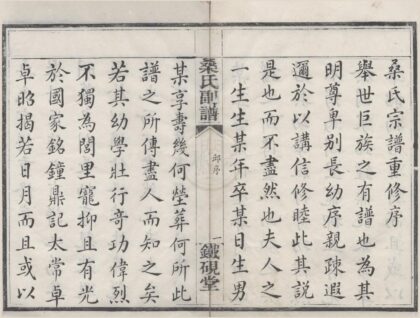 桑氏宗重修序
舉世巨族之有譜也為其
明尊卑別長幼序親疎遐
邇於以講信修睦此其說
是也而不盡然也夫人之
一生生某年卒某日生男
桑氏副譜
邱序
一
鐵硯堂
某享壽幾何塋葬何所此
譜之所傳盡人而知之矣
若其幼學壯行奇功偉烈
不獨為閭里寵抑且有光
於國家銘鐘鼎記太常卓
卓昭揭若日月而且或以